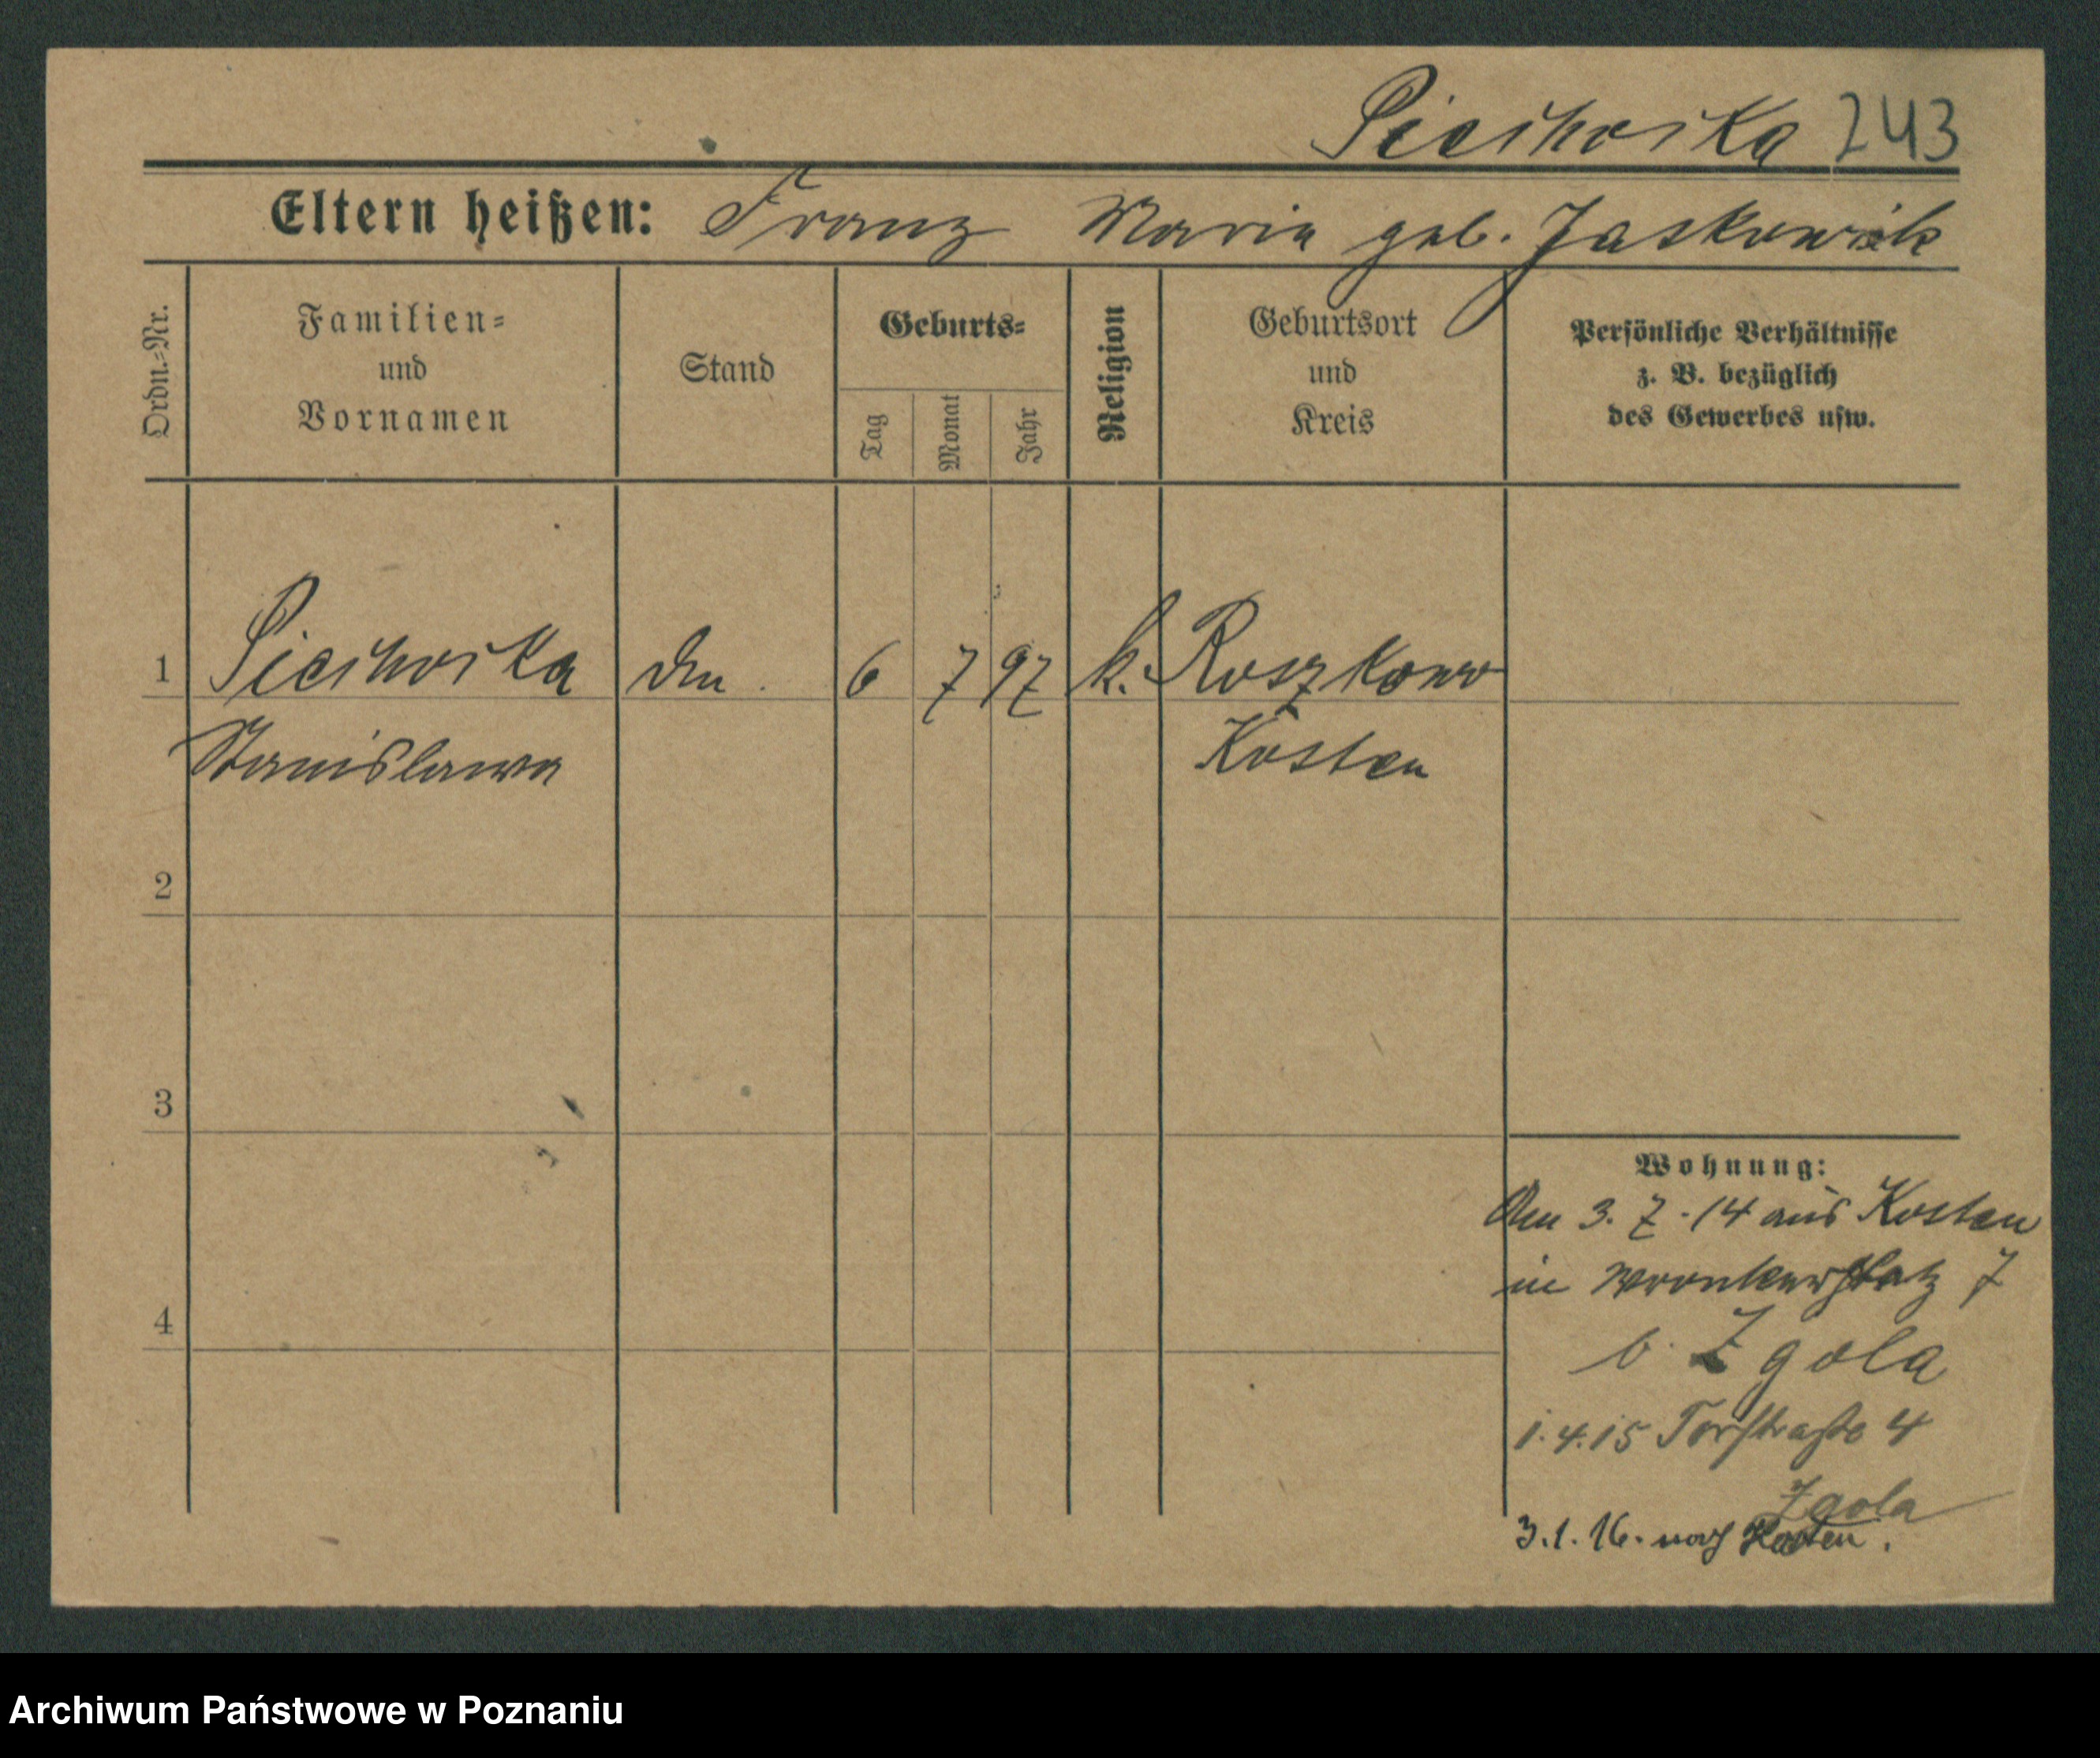 Piechocka 243
Eltern heißen: Franz Maria geb. Jaskowiak
Ordn.-Nr.
Familien-
und
Vornamen
Stand
Geburts-
Tag
Monat
Jahr
Religion
Geburtsort
und
Kreis
Persönliche Verhältnisse
z. B. bezüglich
des Gewerbes usw.
1 Piechocka 6 7 97 k. Roszkowo
Stanislawa Kosten
2
3
4
Wohnung:
Am 3. 7. 14 aus Kosten
in Wronkerplatz 7
b. Zgola
1.4.15 Torstraße 4
Zgola
3.1.16. nach Kosten.
Archiwum Państwowe w Poznaniu